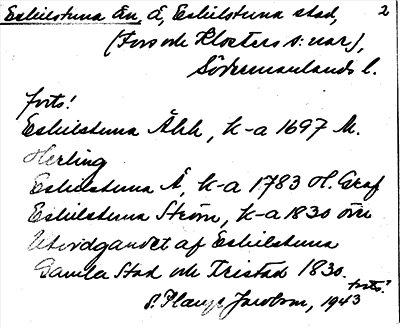 Eskilstuna ån, å, Eskilstuna stad, 2
(Fors och Klosters s:nar),
Södermanlands l.
forts!
Eskilstuna Åhh, k-a 1697 M.
Herling
Eskilstuna Å, k-a 1783 H. Graf
Eskilstuna Ström, k-a 1830 över
Utvidgandet af Eskilstuna
Gamla Stad och Fristad 1830.
forts!
Jacobson, 1943